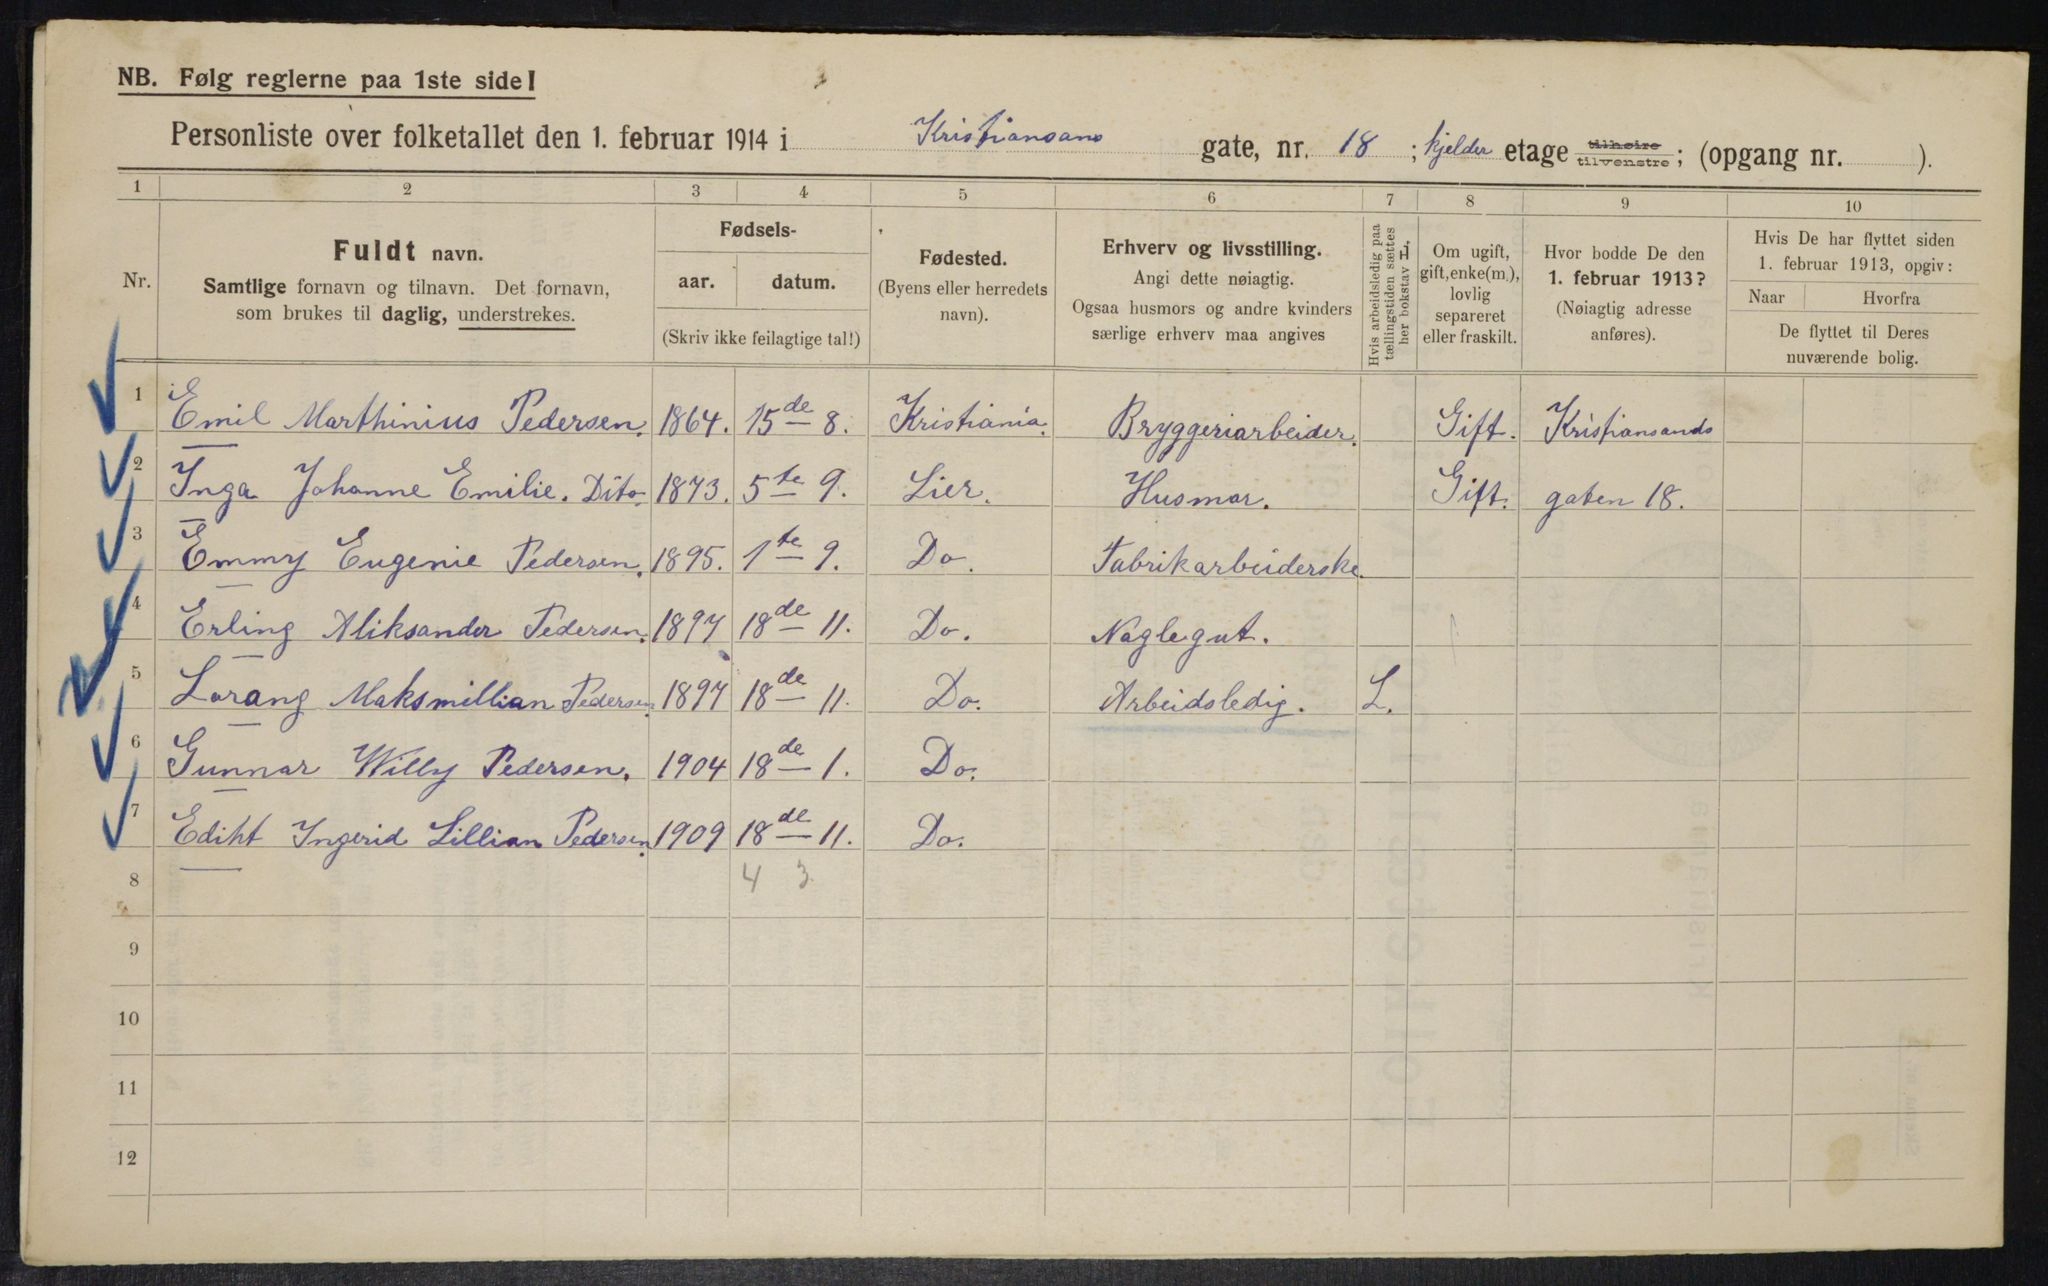 NB. Følg reglerne paa 1ste side!
Personliste over folketallet den 1. februar 1914 i Kristiansans gate, nr. 18 ; kjelder etage tilhøire tilvenstre; (opgang nr. ).
1 2 3 4 5 6 7 8 9 10
Nr.
Fuldt navn.
Samtlige fornavn og tilnavn. Det fornavn,
som brukes til daglig, understrekes.
Fødsels-
aar. datum.
(Skriv ikke feilagtige tal!)
Fødested.
(Byens eller herredets
navn).
Erhverv og livsstilling.
Angi dette nøiagtig.
Ogsaa husmors og andre kvinders
særlige erhverv maa angives
Hvis arbeidsledig paa
tællingstiden sættes
her bokstav L.
Om ugift,
gift, enke(m.),
lovlig
separeret
eller fraskilt.
Hvor bodde De den
1. februar 1913?
(Nøiagtig adresse
anføres).
Hvis De har flyttet siden
1. februar 1913, opgiv:
Naar Hvorfra
De flyttet til Deres
nuværende bolig.
1 Emil Marthinius Pedersen. 1864. 15de 8. Kristiania. Bryggeriarbeider. Gift. Kristiansands
2 Inga Johanne Emilie. Dito 1873. 5te 9. Lier. Husmor. Gift. gaten 18.
3 Emmy Eugenie Pedersen. 1895. 1te 9. Do. Fabrikarbeiderske.
4 Erling Aliksander Pedersen. 1897 18de 11. Do. Naglegut.
5 Lorang Maksmillian Pedersen. 1897 18de 11. Do. Arbeidsledig. L.
6 Gunnar Willy Pedersen. 1904 18de 1. Do.
7 Edikt Ingerid Lillian Pedersen. 1909 18de 11. Do.
8 4 3
9
10
11
12